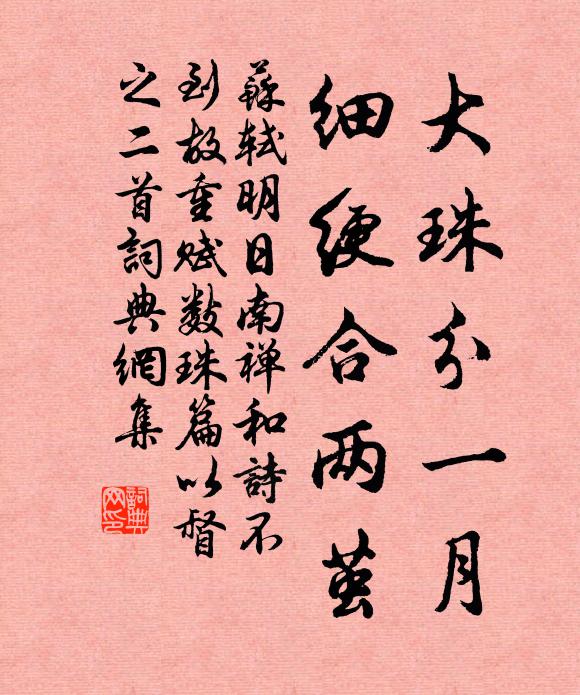 大珠分一月
细绠合两茧
蘇軾明日南禅和詩不
到故重赋数珠篇以督
之二首詞典網集
詞典网印